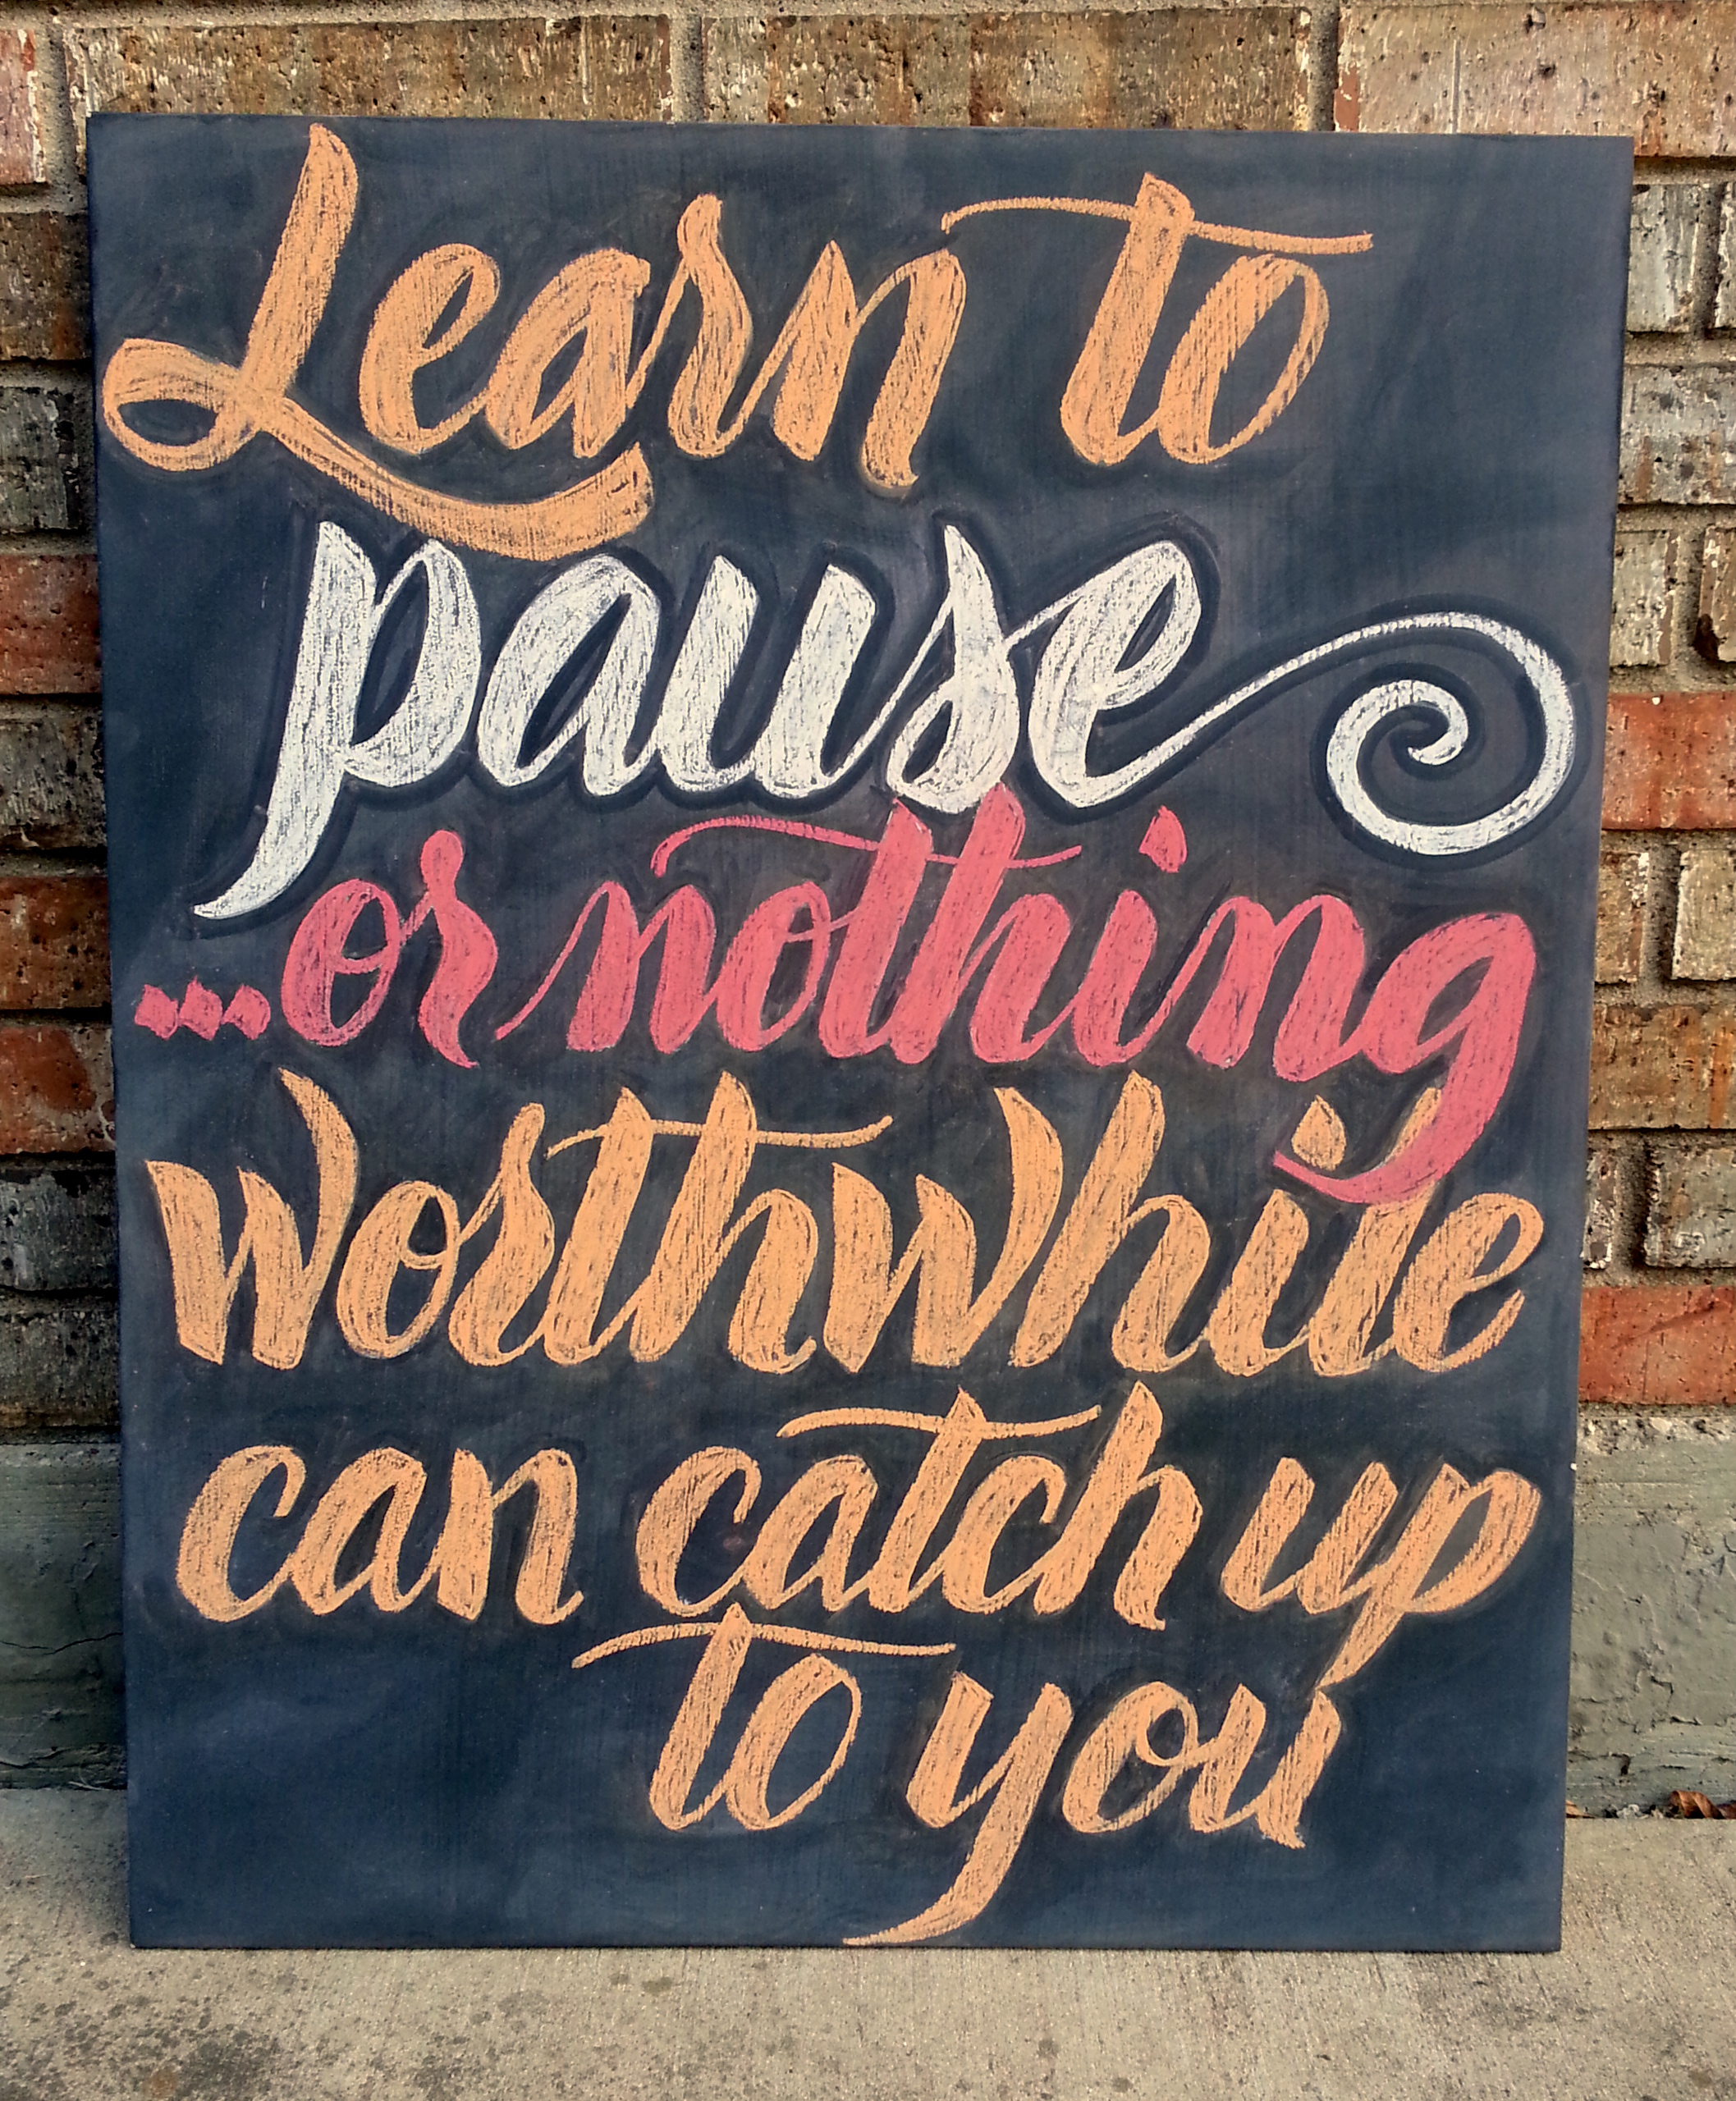 Learn to
pause
...or nothing
worthwhile
can catch up
to you